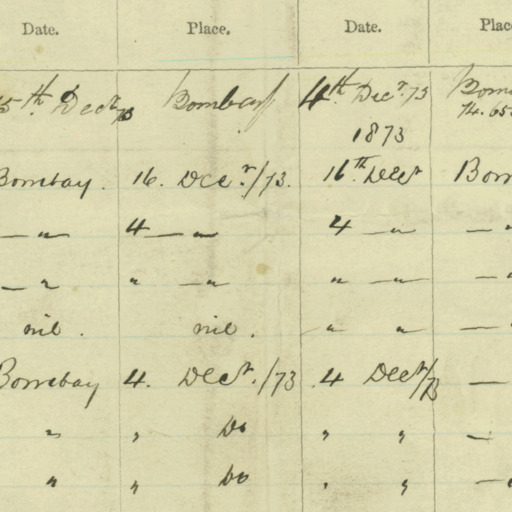 Date. Place. Date. Place
5th Decr 73 Bombay 4th Decr. 73 Bom
74.65
1873
Bombay. 16. Decr./73. 16th Decr Bom
— " 4 — " 4 — " — "
— " " — " " — " — "
nil. nil. " " — "
Bombay 4. Decr./73 4 Decr/73 —
" " Do " " —
" " Do " " — "